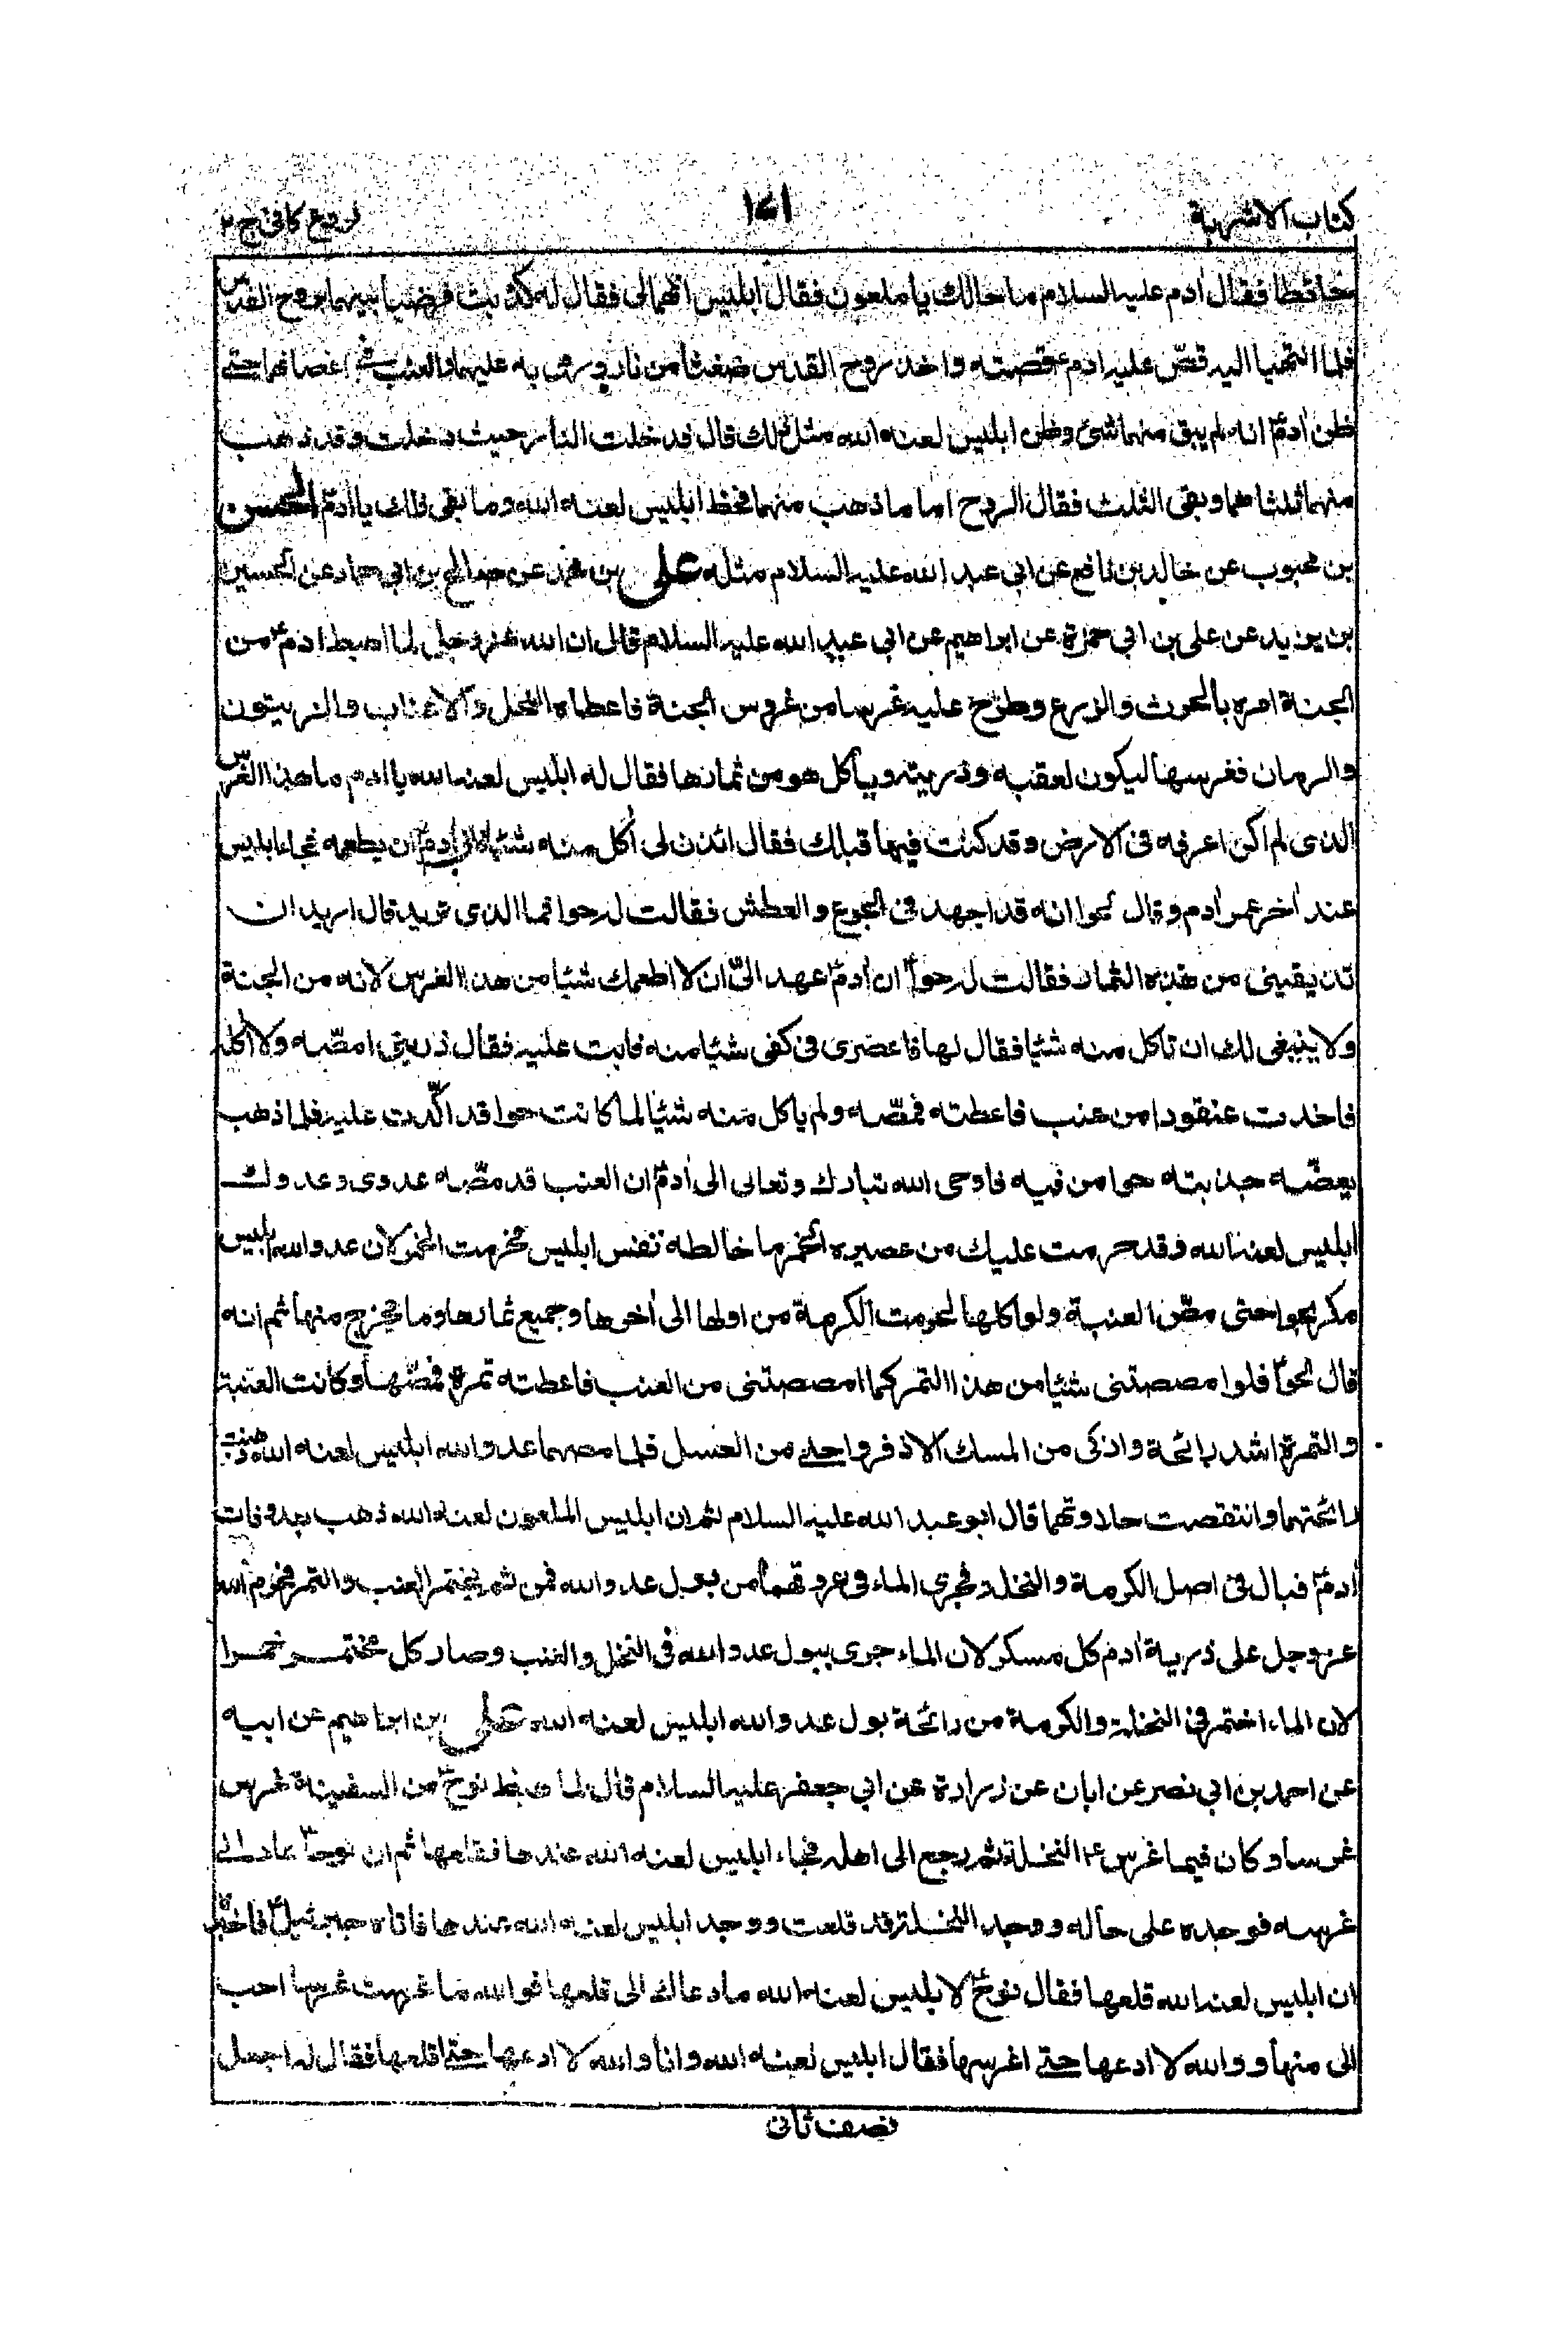 كتاب الاشربة
١٤١
فروع كافي ج ٢
حائطا فقال ادم عليه السلام ما حالك يا ملعون فقال ابليس انهما لي فقال له كذبت فرضيا بينهما بروح القدس
فلما انتهيا اليه قصّ عليه ادمؑ قصته واخذ روح القدس ضغثا من نار ورمى به عليهما والعنب في اغصانهما حتى
ظن ادمؑ انه لم يبق منهما شئ وظن ابليس لعنه الله مثل ذلك قال فدخلت النار حيث دخلت وقد ذهب
منهما ثلثاهما وبقى الثلث فقال الروح اما ما ذهب منهما فحظ ابليس لعنه الله وما بقى فلك يا ادمؑ الحسن
بن محبوب عن خالد بن نافع عن ابي عبد الله عليه السلام مثله على بن محمد عن صالح بن ابي حماد عن الحسين
بن يزيد عن على بن ابي حمزة عن ابراهيم عن ابي عبد الله عليه السلام قال ان الله عز وجل لما اهبط ادمؑ من
الجنة امره بالحرث والزرع وطرح عليه غرسا من غروس الجنة فاعطاه النخل والاعناب والزيتون
والرمان فغرسها ليكون لعقبه وذريته وياكل هو من ثمارها فقال له ابليس لعنه الله يا ادم ما هذا الغرس
الذى لم اكن اعرفه في الارض وقد كنت فيها قبلك فقال ائذن لى اٰكل منه شيئا فابى ادمؑ ان يطعمه فجاء ابليس
عند اٰخر عمر اٰدم وقال لحوا انه قد اجهدنى الجوع والعطش فقالت له حوا فما الذى تريد قال اريد ان
تذيقينى من هذه الثمار فقالت له حوا ان اٰدمؑ عهد الىّ ان لا اطعمك شيئا من هذا الغرس لانه من الجنة
ولا ينبغى لك ان تاكل منه شيئا فقال لها فاعصرى في كفى شيئا منه فابت عليه فقال ذرينى امصّه ولا اٰكله
فاخذت عنقودا من عنب فاعطته فمصّه ولم ياكل منه شيئا لما كانت حوا قد اكّدت عليه فلما ذهب
يعضّه جذبته حوا من فيه فاوحى الله تبارك وتعالى الى اٰدمؑ ان العنب قد مصّه عدوى وعدوك
ابليس لعنه الله وقد حرمت عليك من عصيره الخمر ما خالطه نفس ابليس فحرمت الخمر لان عدو الله ابليس
مكر بحوا حتى مصّ العنبة ولو اكلها لحرمت الكرمة من اولها الى اٰخرها وجميع ثمارها وما يخرج منها ثم انه
قال لحوّا فلو امصصتنى شيئا من هذا التمر كما امصصتنى من العنب فاعطته تمرة فمصّها وكانت العنبة
والتمرة اشد رائحة واذكى من المسك الاذفر واحلى من العسل فلما مصهما عدو الله ابليس لعنه الله ذهبت
رائحتهما وانتقصت حلاوتهما قال ابو عبد الله عليه السلام ثم ان ابليس الملعون لعنه الله ذهب بعد وفات
اٰدمؑ فبال في اصل الكرمة والنخلة فجرى الماء في عروقهما من بول عدو الله فمن ثم يختمر العنب والتمر فحرم الله
عز وجل على ذرية اٰدم كل مسكر لان الماء جرى ببول عدو الله في النخل والعنب وصار كل مختمر خمرا
لان الماء اختمر في النخلة والكرمة من رائحة بول عدو الله ابليس لعنه الله على بن ابراهيم عن ابيه
عن احمد بن ابي نصر عن ابان عن زرارة عن ابي جعفر عليه السلام قال لما هبط نوحؑ من السفينة غرس
غرسا وكان فيما غرسؑ النخلة ثم رجع الى اهله فجاء ابليس لعنه الله عندها فقلعها ثم ان نوحاؑ عاد الى
غرسه فوجده على حاله ووجد النخلة قد قلعت ووجد ابليس لعنه الله عندها فاتاه جبرئيلؑ فاخبره
ان ابليس لعنه الله قلعها فقال نوحؑ لابليس لعنه الله ما دعاك الى قلعها فوالله ما غرست غرسا احب
الى منها ووالله لا ادعها حتى اغرسها فقال ابليس لعنه الله وانا والله لا ادعها حتى اقلعها فقال له اجعل
نصف ثانى